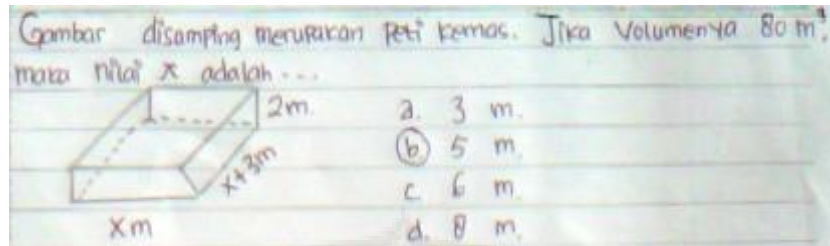 Gambar disamping merupakan Peti kemas. Jika Volumenya 80 m³,
maka nilai x adalah ...
2m.
x+3m
xm
a. 3 m.
b 5 m.
c. 6 m.
d. 8 m.